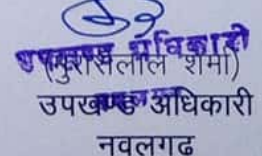 उपखण्ड अधिकारी
शर्मा)
उपखण्ड अधिकारी
नवलगढ